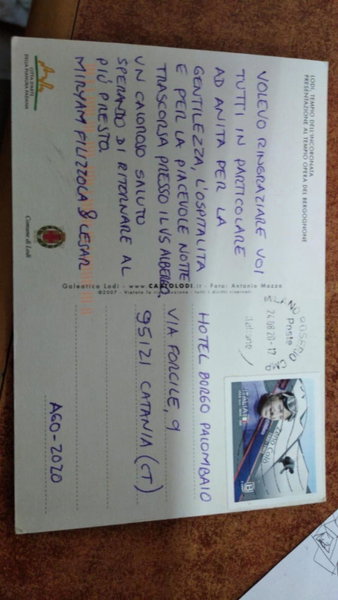 LODI, TEMPIO DELL'INCORONATA
PRESENTAZIONE AL TEMPIO OPERA DEL BERGOGNONE
VOLEVO RINGRAZIARE VOI
TUTTI IN PARTICOLARE
AD ANITA PER LA
GENTILEZZA, L'OSPITALITA
E PER LA PIACEVOLE NOTTE
TRASCORSA PRESSO IL VS ALBERGO.
UN CALOROSO SALUTO
SPERANDO DI RITORNARE AL
PIÙ PRESTO.
MIRYAM FIUZZOLA & CESAR
CITTÀ D'ARTE
DELLA PIANURA PADANA
Comune di Lodi
Galeotica Lodi - www.CARTOLODI.it - Foto: Antonio Mazza
©2007 - Vietata la riproduzione - tutti i diritti riservati
Poste
24.08.20-17
ITALIA
HOTEL BORGO PALOMBAIO
VIA FORCILE, 9
95121 CATANIA (CT)
AGO-2020